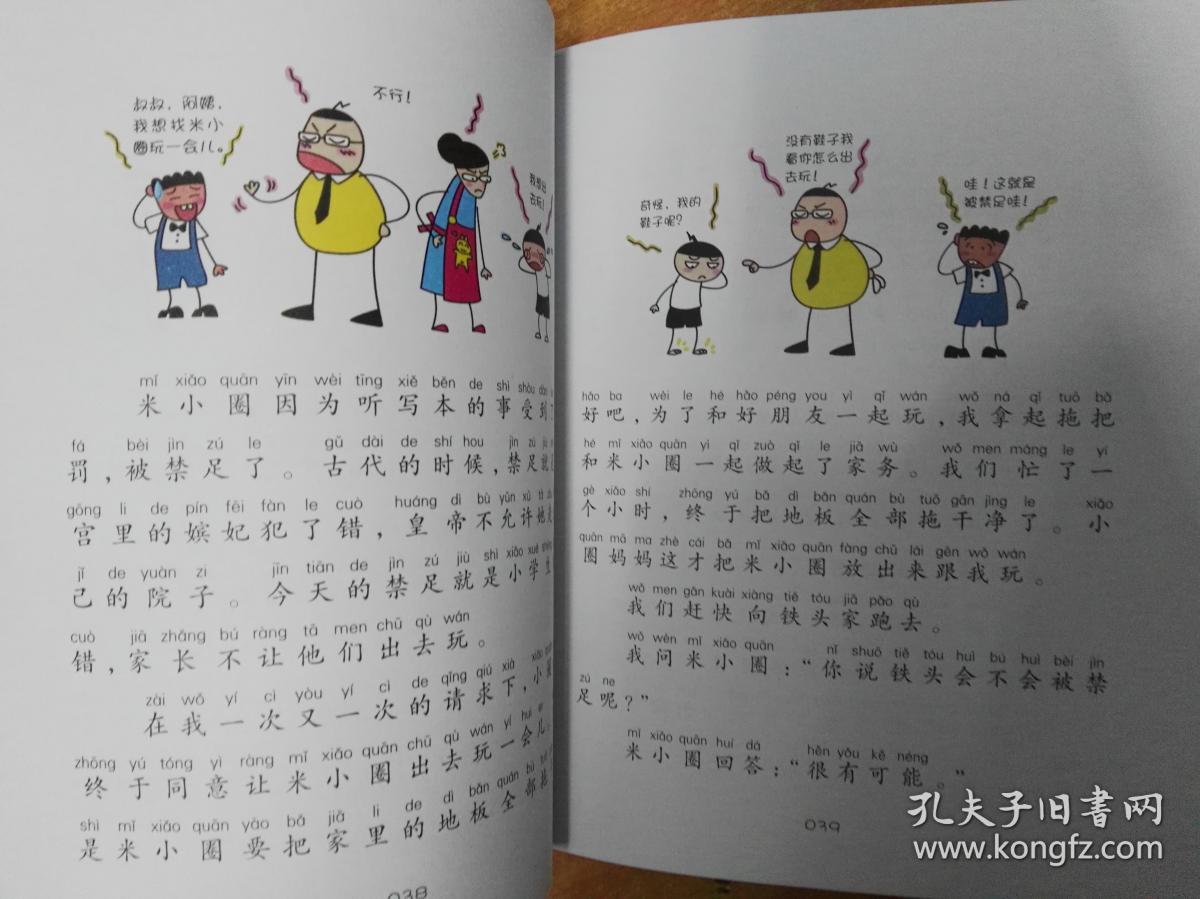 叔叔，阿姨，
我想找米小
圈玩一会儿。
不行！
我想出
去玩！
mǐ xiǎo quān yīn wèi tīng xiě běn de shì shòu dào
米小圈因为听写本的事受到
fá bèi jìn zú le gǔ dài de shí hou jìn zú jiù
罚，被禁足了。古代的时候，禁足就
gōng li de pín fēi fàn le cuò huáng dì bù yǔn xǔ tā
宫里的嫔妃犯了错，皇帝不允许她
jǐ de yuàn zi jīn tiān de jìn zú jiù shì xiǎo xué shēng
己的院子。今天的禁足就是小学生
cuò jiā zhǎng bú ràng tā men chū qù wán
错，家长不让他们出去玩。
zài wǒ yí cì yòu yí cì de qǐng qiú xià xiǎo
在我一次又一次的请求下，小
zhōng yú tóng yì ràng mǐ xiǎo quān chū qù wán yí huì er
终于同意让米小圈出去玩一会儿
shì mǐ xiǎo quān yào bǎ jiā li de dì bǎn quán bù tuō
是米小圈要把家里的地板全部拖
038
奇怪，我的
鞋子呢？
没有鞋子我
看你怎么出
去玩！
哇！这就是
被禁足哇！
hǎo ba wèi le hé hǎo péng you yì qǐ wán wǒ ná qǐ tuō bǎ
好吧，为了和好朋友一起玩，我拿起拖把
hé mǐ xiǎo quān yì qǐ zuò qǐ le jiā wù wǒ men máng le yí
和米小圈一起做起了家务。我们忙了一
gè xiǎo shí zhōng yú bǎ dì bǎn quán bù tuō gān jìng le xiǎo
个小时，终于把地板全部拖干净了。小
quān mā ma zhè cái bǎ mǐ xiǎo quān fàng chū lái gēn wǒ wán
圈妈妈这才把米小圈放出来跟我玩。
wǒ men gǎn kuài xiàng tiě tóu jiā pǎo qù
我们赶快向铁头家跑去。
wǒ wèn mǐ xiǎo quān nǐ shuō tiě tóu huì bú huì bèi jìn
我问米小圈：“你说铁头会不会被禁
zú ne
足呢？”
mǐ xiǎo quān huí dá hěn yǒu kě néng
米小圈回答：“很有可能。”
039
孔夫子旧书网
www.kongfz.com